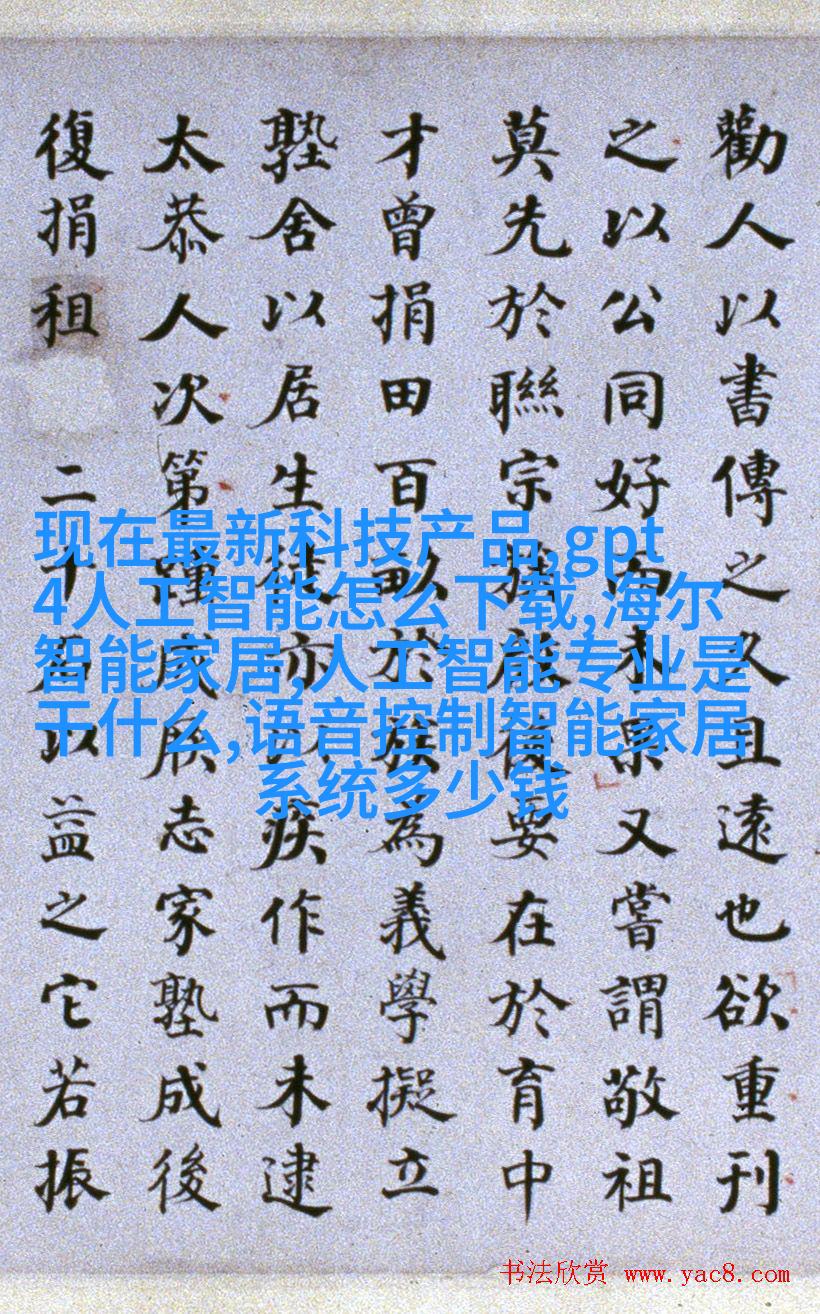 勸人以書傳之久且遠也欲重刊
之以公同好而未果又嘗謂敬祖
莫先於聯宗族後要在於育中
才曾捐田百畝於族為義學擬立
塾舍以居生徒亦以疾作而未逮
太恭人次第踵成厥志家塾成後
復捐租二十石以益之它若振
现在最新科技产品,gpt
4人工智能怎么下载,海尔
智能家居,人工智能专业是
干什么,语音控制智能家居
系统多少钱
书法欣赏 www.yac8.com